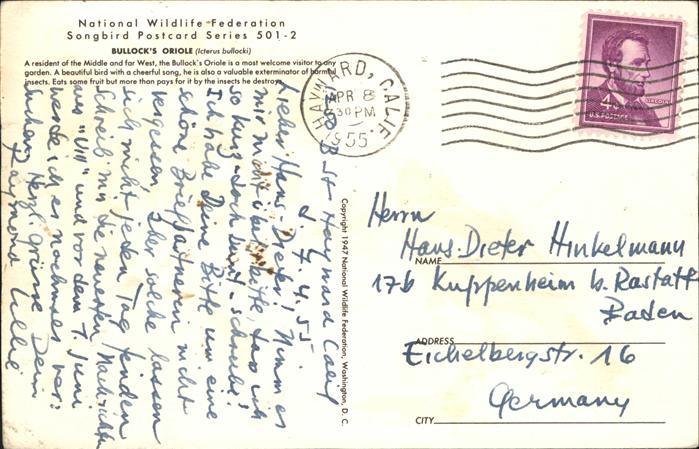 National Wildlife Federation
Songbird Postcard Series 501-2
BULLOCK'S ORIOLE (Icterus bullocki)
A resident of the Middle and far West, the Bullock's Oriole is a most welcome visitor to any
garden. A beautiful bird with a cheerful song, he is also a valuable exterminator of harmful
insects. Eats some fruit but more than pays for it by the insects he destroys.
HAYWARD, CALIF.
APR 8
30 PM
1955
4¢
LINCOLN
U.S. POSTAGE
B St Hayward Calif
d 7.4.55.
Lieber Hans-Dieter! Nimm es
mir nicht übel, bitte, dass ich
so kurz - doch bunt - schreibe!
Ich habe Deine Bitte um eine
schöne Briefpartnerin nicht
vergessen. Aber solche lassen
sich nicht jeden Tag finden
Schreib mir die neuesten Nachrichten
aus "VII" und vor dem 7. Juni
werde ich es nochmals
Herzl. Grüsse Dein
Raymond
Copyright 1947 National Wildlife Federation, Washington, D. C.
Herrn
Hans-Dieter Hinkelmann
NAME
17b Kuppenheim b. Rastatt
Baden
ADDRESS
Eichelbergstr. 16
Germany
CITY